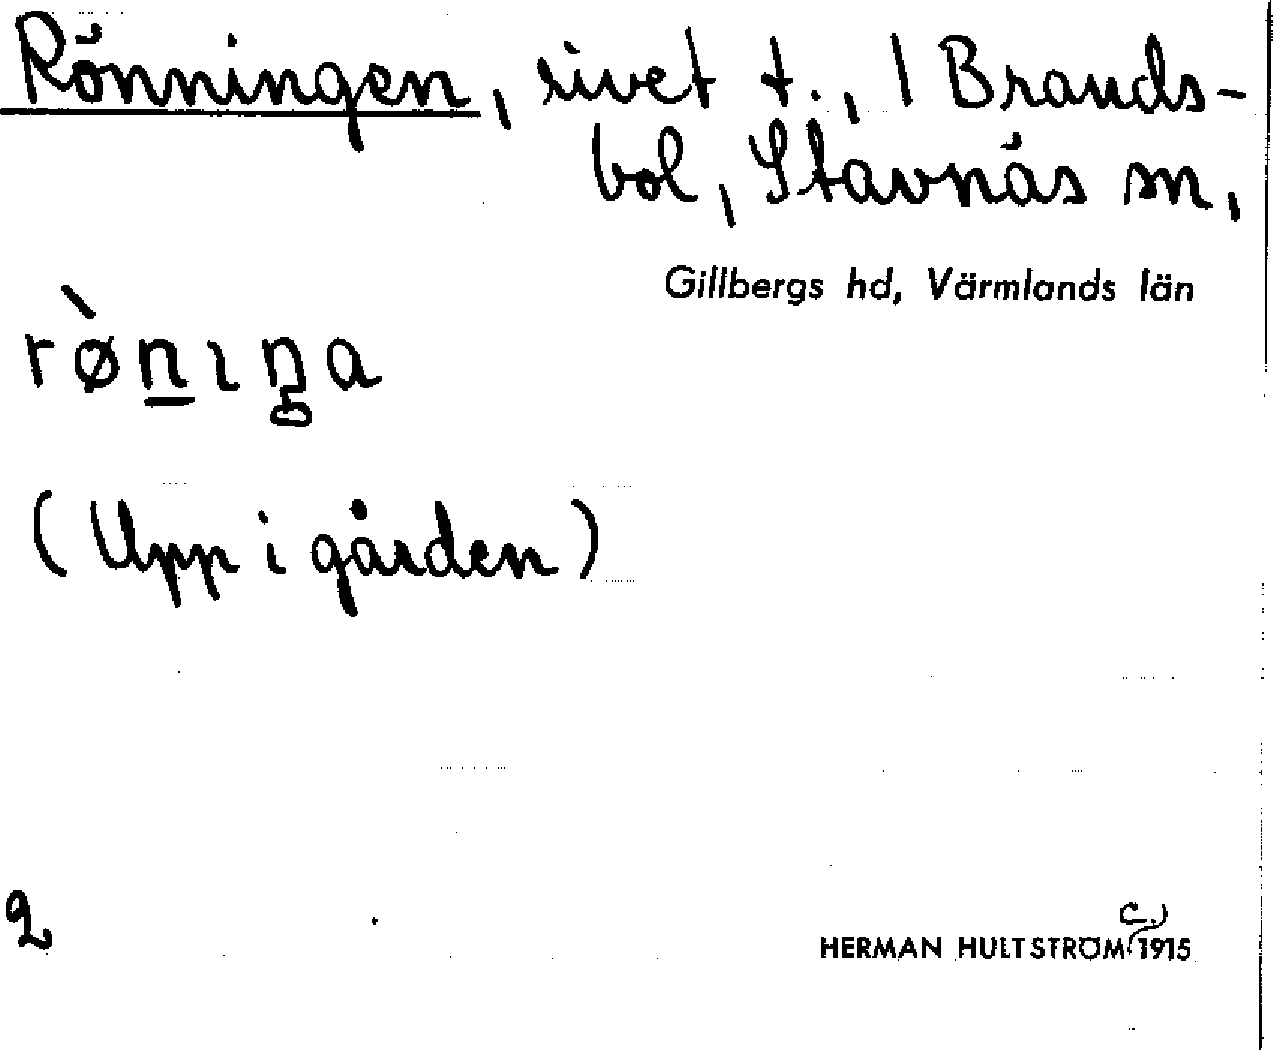 Rönningen, rivet t., 1 Brands-
bol, Stavnäs sn,
Gillbergs hd, Värmlands län
rø̀n̲ɩŋa
(Upp i gården)
2
HERMAN HULTSTRÖM (c.) 1915